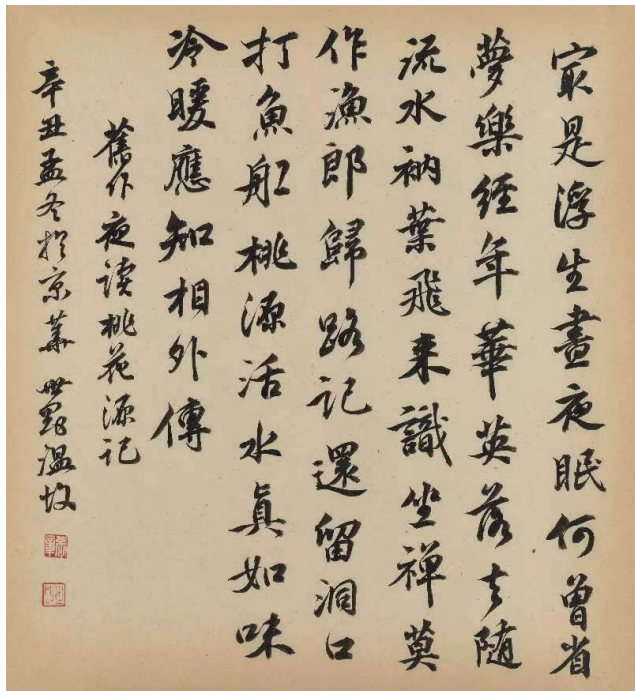 㝡是浮生晝夜眠何曾省
夢樂經年華英落去随
流水衲葉飛来識坐禅莫
作漁郎歸路記還留洞口
打魚舡桃源活水真如味
冷暖應知相外傳
舊作夜读桃花源记
辛丑孟冬於京華